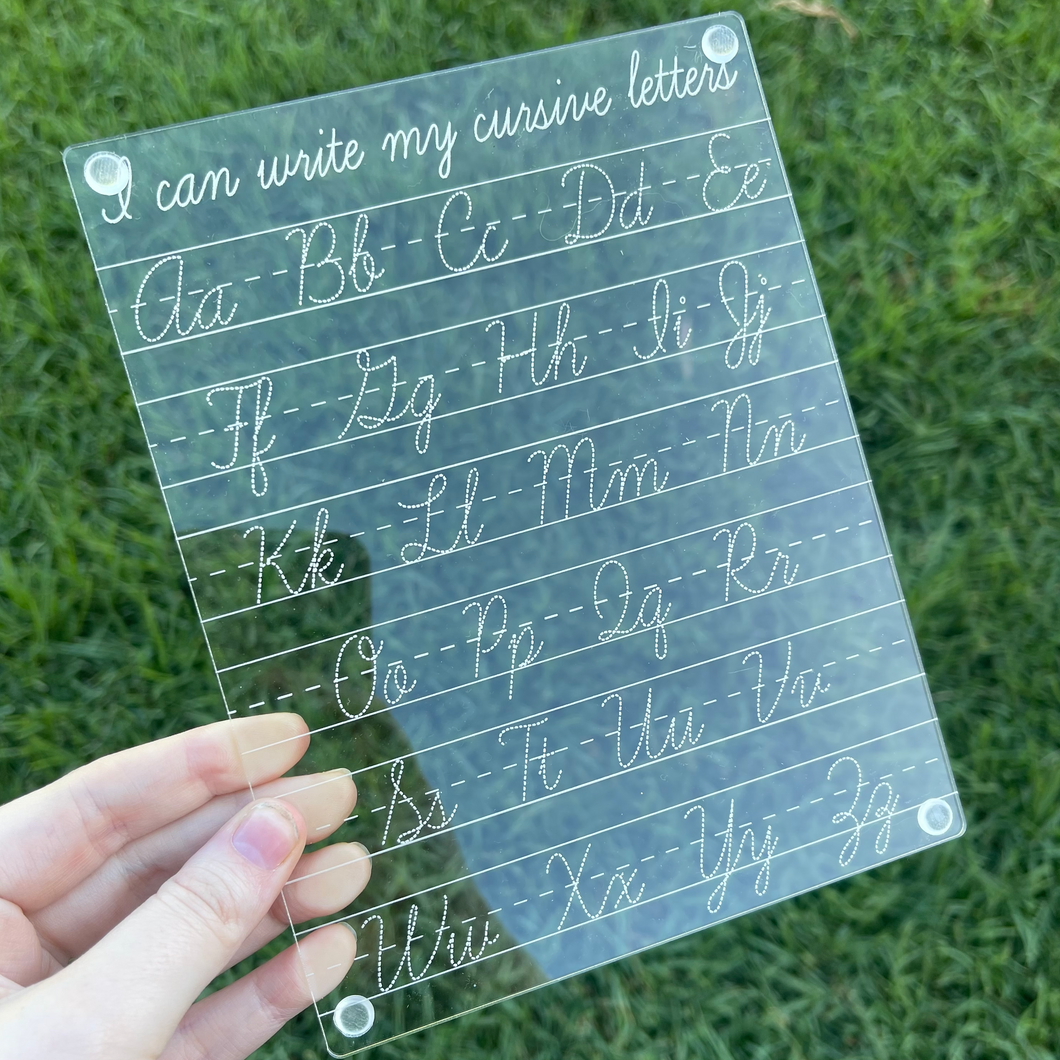 I can write my cursive letters
Aa Bb Cc Dd Ee
Ff Gg Hh Ii Jj
Kk Ll Mm Nn
Oo Pp Qq Rr
Ss Tt Uu Vv
Ww Xx Yy Zz